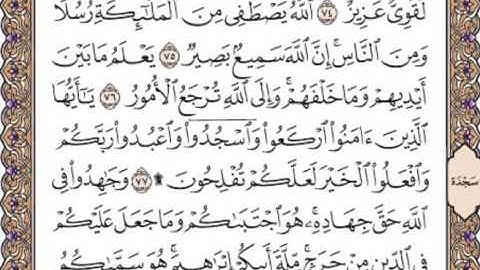 لَقَوِيٌّ عَزِيزٌ ٧٤ ٱللَّهُ يَصْطَفِي مِنَ ٱلْمَلَٰٓئِكَةِ رُسُلًا
وَمِنَ ٱلنَّاسِ ۚ إِنَّ ٱللَّهَ سَمِيعٌۢ بَصِيرٌ ٧٥ يَعْلَمُ مَا بَيْنَ
أَيْدِيهِمْ وَمَا خَلْفَهُمْ ۗ وَإِلَى ٱللَّهِ تُرْجَعُ ٱلْأُمُورُ ٧٦ يَٰٓأَيُّهَا
ٱلَّذِينَ ءَامَنُوا۟ ٱرْكَعُوا۟ وَٱسْجُدُوا۟ وَٱعْبُدُوا۟ رَبَّكُمْ
وَٱفْعَلُوا۟ ٱلْخَيْرَ لَعَلَّكُمْ تُفْلِحُونَ ۩ ٧٧ وَجَٰهِدُوا۟ فِى
ٱللَّهِ حَقَّ جِهَادِهِۦ ۚ هُوَ ٱجْتَبَىٰكُمْ وَمَا جَعَلَ عَلَيْكُمْ
فِى ٱلدِّينِ مِنْ حَرَجٍ ۚ مِّلَّةَ أَبِيكُمْ إِبْرَٰهِيمَ ۚ هُوَ سَمَّىٰكُمُ
سَجْدَة